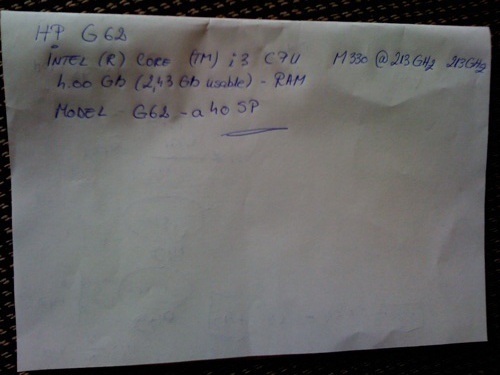 HP G62
INTEL (R) CORE (TM) i3 CPU M330 @ 2.13GHz 2.13GHz
4.00 GB (2,43 GB usable) - RAM
MODEL G62 - a40 SP